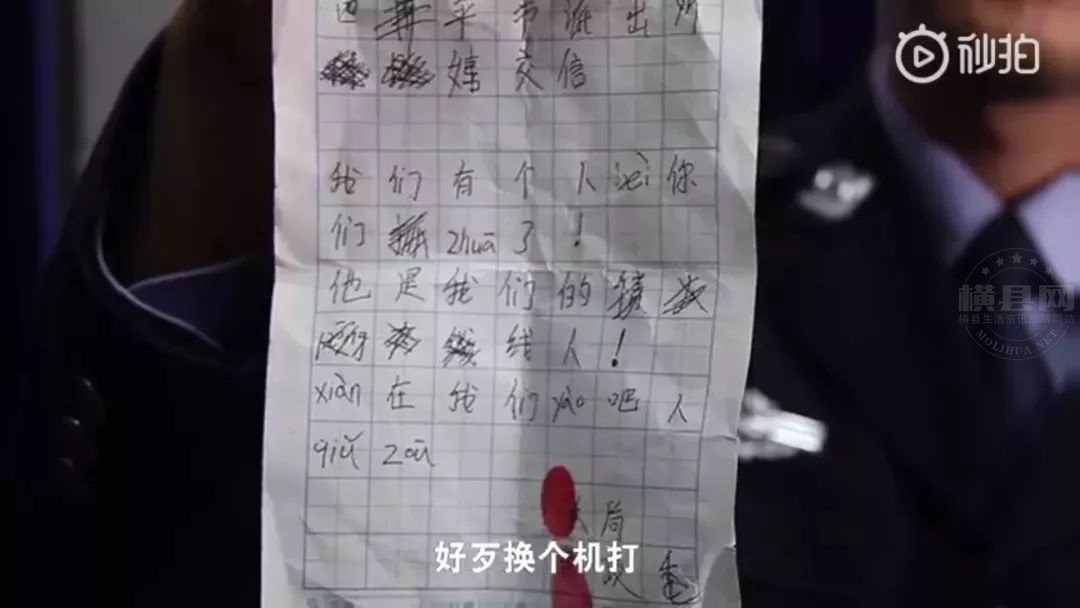 秒拍
平市派出所
交信
我们有个人bèi你
们zhuā了!
他是我们的
线人!
xiàn在我们yào吧人
qiǔ zǒu
局
好歹换个机打
横县网
横县生活资讯品牌网站
MOLIHUA.NET